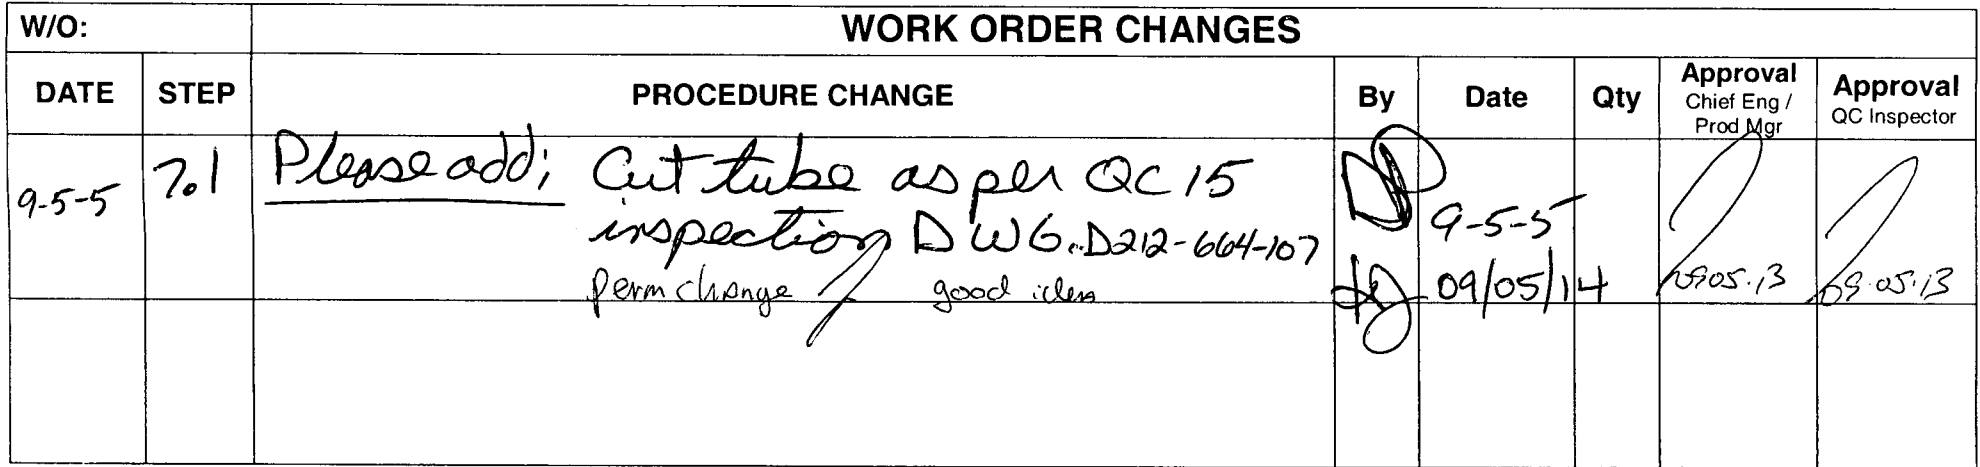 W/O: WORK ORDER CHANGES
DATE STEP PROCEDURE CHANGE By Date Qty Approval Chief Eng / Prod Mgr Approval QC Inspector
9-5-5 7.1 Please add; Cut tube as per QC 15
inspection DWG. D212-664-107 9-5-5
perm change good idea 09/05/14 0905.13 09.05.13